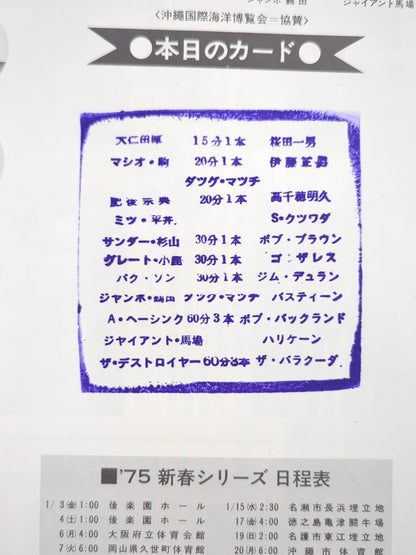 ジャンボ鶴田　ジャイアント馬場
〈沖縄国際海洋博覧会=協賛〉
●本日のカード●
大仁田厚　15分1本　桜田一男
マシオ・駒　20分1本　伊藤正男
タツグ・マツチ
肥後宗典　20分1本　高千穂明久
ミツ・平井　S・クツワダ
サンダー・杉山　30分1本　ボブ・ブラウン
グレート・小鹿　30分1本　ゴンザレス
パク・ソン　30分1本　ジム・デュラン
ジャンボ・鶴田　タツグ・マツチ　バスティーン
A・ヘーシンク　60分3本　ボブ・バックランド
ジャイアント・馬場　ハリケーン
ザ・デストロイヤー　60分3本　ザ・バラクーダ.
■'75 新春シリーズ 日程表
1/3㊎1:00　後楽園ホール　1/15㊌2:30　名瀬市長浜埋立地
4㊏1:00　後楽園ホール　17㊎4:00　徳之島亀津闘牛場
6㊊4:00　大阪府立体育会館　19㊐2:00　名護市東江埋立地
7㊋6:00　岡山県久世町体育館　20㊊6:00　沖縄市体育館